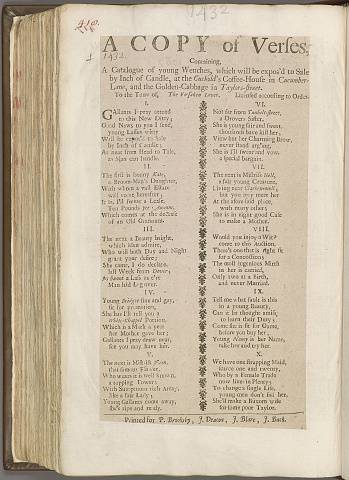 1432
A COPY of Verses,
Containing,
A Catalogue of young Wenches, which will be expos'd to Sale
by Inch of Candle, at the Cuckold's Coffee-House in Cucumber-
Lane, and the Golden-Cabbage in Taylors-street.
To the Tune of, The Licensed according to Order.
I.
GAllants I pray attend
to this New Ditty;
Good News to you I send,
young Lasses witty
Will be expos'd to Sale
by Inch of Candle;
As neat from Head to Tale,
as Man can handle.
II.
The first is bonny Kate,
a Broom-Man's Daughter,
With whom a vast Estate
will come hereafter;
It is, I'll swear a Lease,
Ten Pounds per Annum,
Which comes at the decease
of an Old Grannum.
III.
The next a Beauty bright,
which Men admire,
Who will both Day and Night
grant your desire;
She came, I do declare,
last Week from Dover,
As sweet a Lass as e'er
Man laid Leg over.
IV.
Young Bridget fine and gay,
fit for promotion,
She has I'll tell you a
Portion,
Which is a Mark a year
her Mother gave her;
Gallants I pray draw near,
for you may have her.
V.
The next is Mistress Nan,
that famous
Who wants it is well known,
a topping
With Sumptuous rich Array,
like a fair Lady;
Young Gallants come away,
she's ripe and ready.
VI.
Not far from
a Drovers Sister,
She is young fair and sweet,
thousands have kist her;
View but her Charming Brow,
never stand arguing,
She is I'll swear and vow,
a special bargain.
VII.
The next is Mistris Nell,
a fair young Creature,
Living near
but you may meet her
At the aforesaid place,
with many others;
She is in right good Case
to make a Mother.
VIII.
Would you injoy a Wife
come to this Auction,
There's one that is right fit
for a Concoction;
The most ingenious Mirth
in her is carried,
Only two at a Birth,
and never Married.
IX.
Tell me what fault is this
in a young Beauty,
Can it be thought amiss,
to learn their Duty;
Come she is fit for Game,
before you buy her;
Young is her Name,
take her and try her.
X.
We have one strapping Maid,
scarce one and twenty,
Who by a Female Trade
now lives in Plenty;
To change a single Life,
young men don't fail her,
She'll make a Buxom wife
for some poor Taylor.
Printed for P. Brooksby, J. Deacon, J. Blare, J. Back.